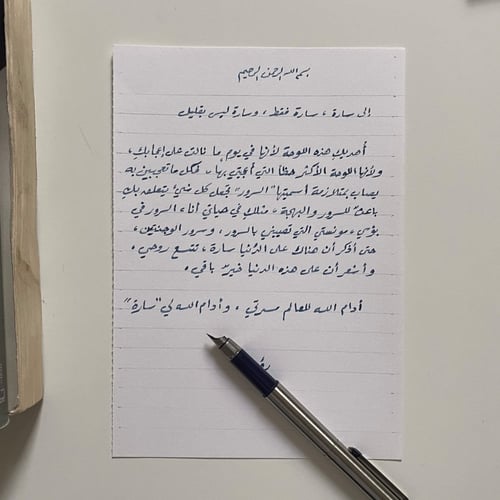 بسم الله الرحمن الرحيم
إلى سارة، سارة فقط، وسارة ليس بقليل
أهديك هذه اللوحة لأنها في يومٍ ما نالت على إعجابكِ،
ولأنها اللوحة الأكثر حظًا التي أُعجبتي بها، لكل ما تعجبين به
يصاب بمتلازمة أسميتها "السرور" تجعل كل شيءٍ يتعلقه بكِ
باعثٌ للسرور والبهجة، مثلكِ في حياتي أناء السرور في
بؤسي، مؤنستي التي تصيبني بالسرور، وسرور الوجنتين،
حتى أذكر أن هناك على الدُنيا سارة، تتسع روحي،
وأشعر أن على هذه الدنيا خيرٌ باقي.
أدام الله للعالم مسرتي، وأدام الله لي "سارة"